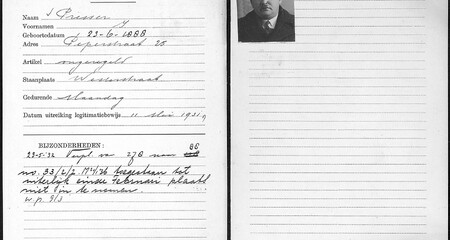 Naam Presser
Voornamen J
Geboortedatum 23-6-1888
Adres Peperstraat 25
Artikel ongeregeld
Staanplaats Westerstraat
Gedurende Maandag
Datum uitreiking legitimatiebewijs 11 Mei 1931
BIJZONDERHEDEN: BG
23-5-32 van naar
no. 33/2/2 toegestaan tot
uiterlijk einde Februari plaats
niet in te nemen.
w.p.